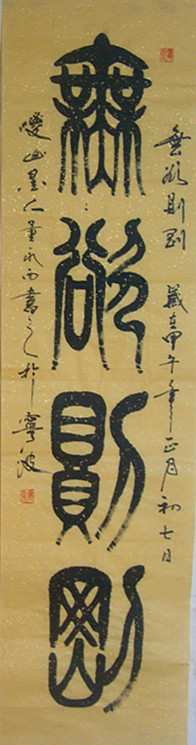 無欲則剛
無欲則剛 歲在甲午年正月初七日
墨人董永西書之於寧波